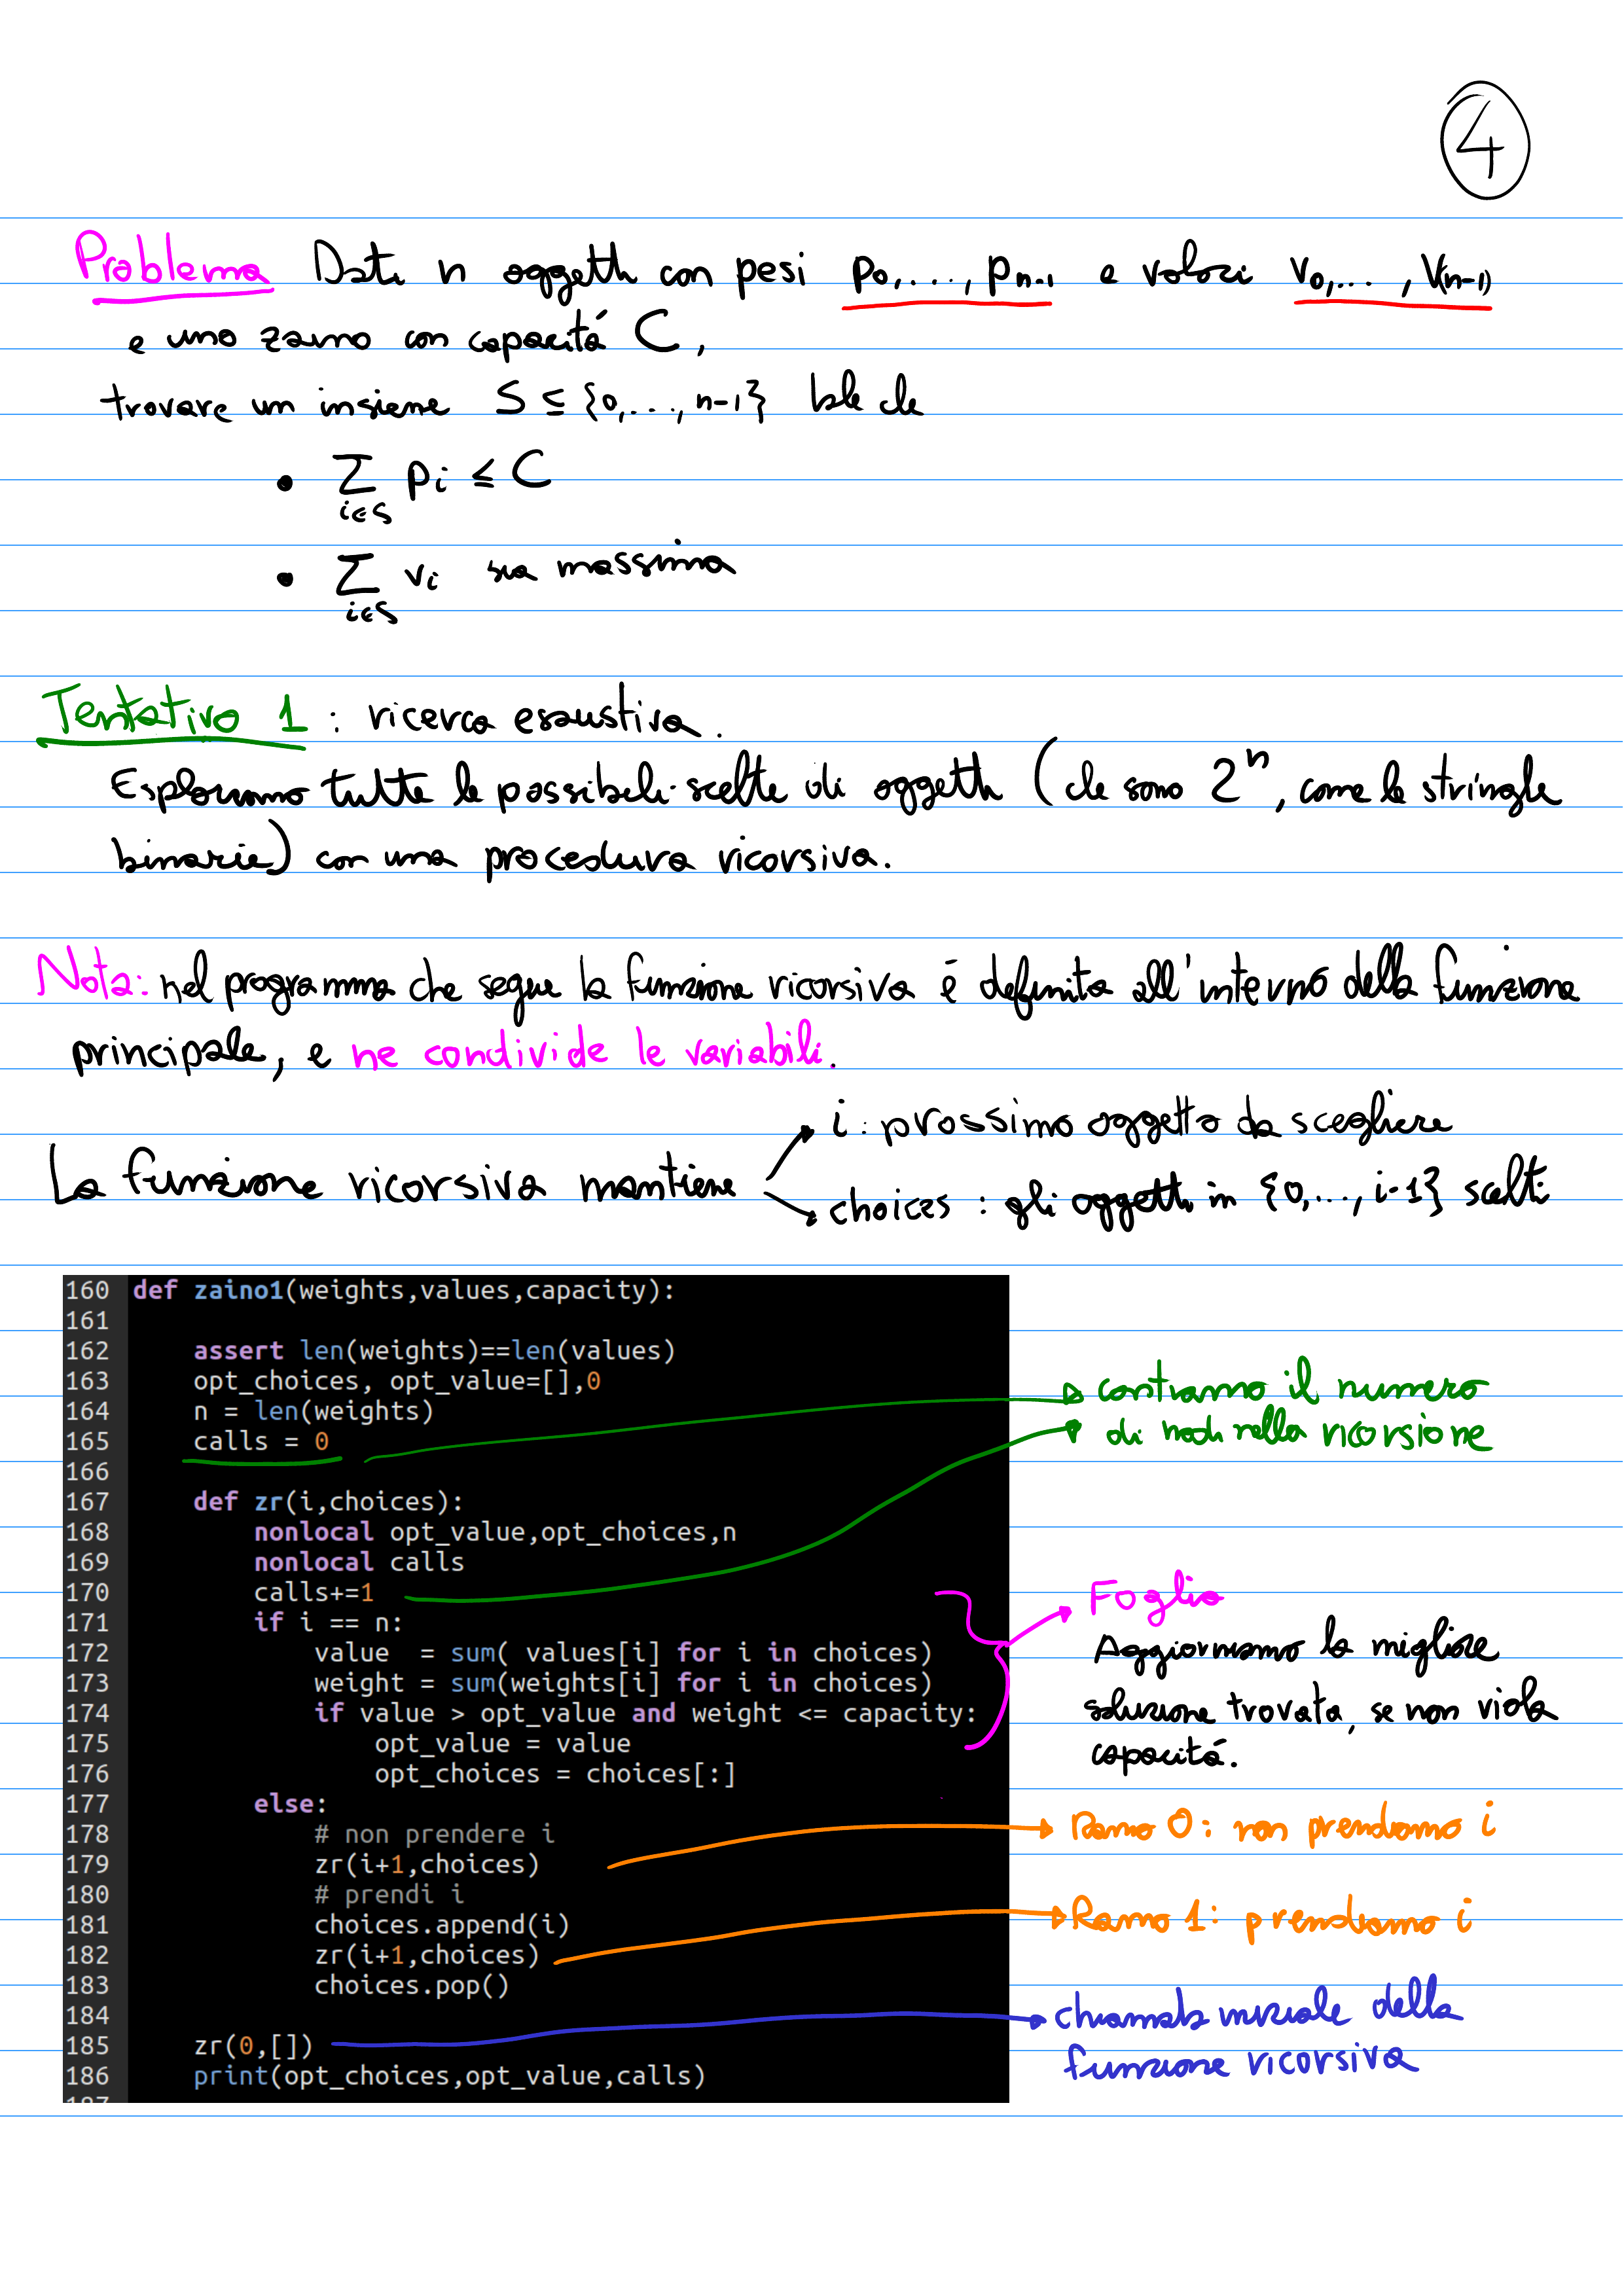 4
Problema Dati n oggetti con pesi p0,...., pn-1 e valori v0,..., v(n-1)
e uno zaino con capacitá C,
trovare un insieme S ⊆ {0,..., n-1} tale che
• ∑i∈S pi ≤ C
• ∑i∈S vi sia massima
Tentativo 1 : ricerca esaustiva.
Esploriamo tutte le possibili scelte di oggetti (che sono 2^n, come le stringhe
binarie) con una procedura ricorsiva.
Nota: nel programma che segue la funzione ricorsiva é definita all'interno della funzione
principale, e ne condivide le variabili.
i : prossimo oggetto da scegliere
La funzione ricorsiva mantiene
choices : gli oggetti in {0,..., i-1} scelti
160 def zaino1(weights,values,capacity):
161
162     assert len(weights)==len(values)
163     opt_choices, opt_value=[],0
164     n = len(weights)
165     calls = 0
166
167     def zr(i,choices):
168         nonlocal opt_value,opt_choices,n
169         nonlocal calls
170         calls+=1
171         if i == n:
172             value  = sum( values[i] for i in choices)
173             weight = sum(weights[i] for i in choices)
174             if value > opt_value and weight <= capacity:
175                 opt_value = value
176                 opt_choices = choices[:]
177         else:
178             # non prendere i
179             zr(i+1,choices)
180             # prendi i
181             choices.append(i)
182             zr(i+1,choices)
183             choices.pop()
184
185     zr(0,[])
186     print(opt_choices,opt_value,calls)
187
contiamo il numero
di nodi nella ricorsione
Foglia
Aggiorniamo la migliore
soluzione trovata, se non viola
capacitá.
Ramo 0: non prendiamo i
Ramo 1: prendiamo i
chiamata iniziale della
funzione ricorsiva